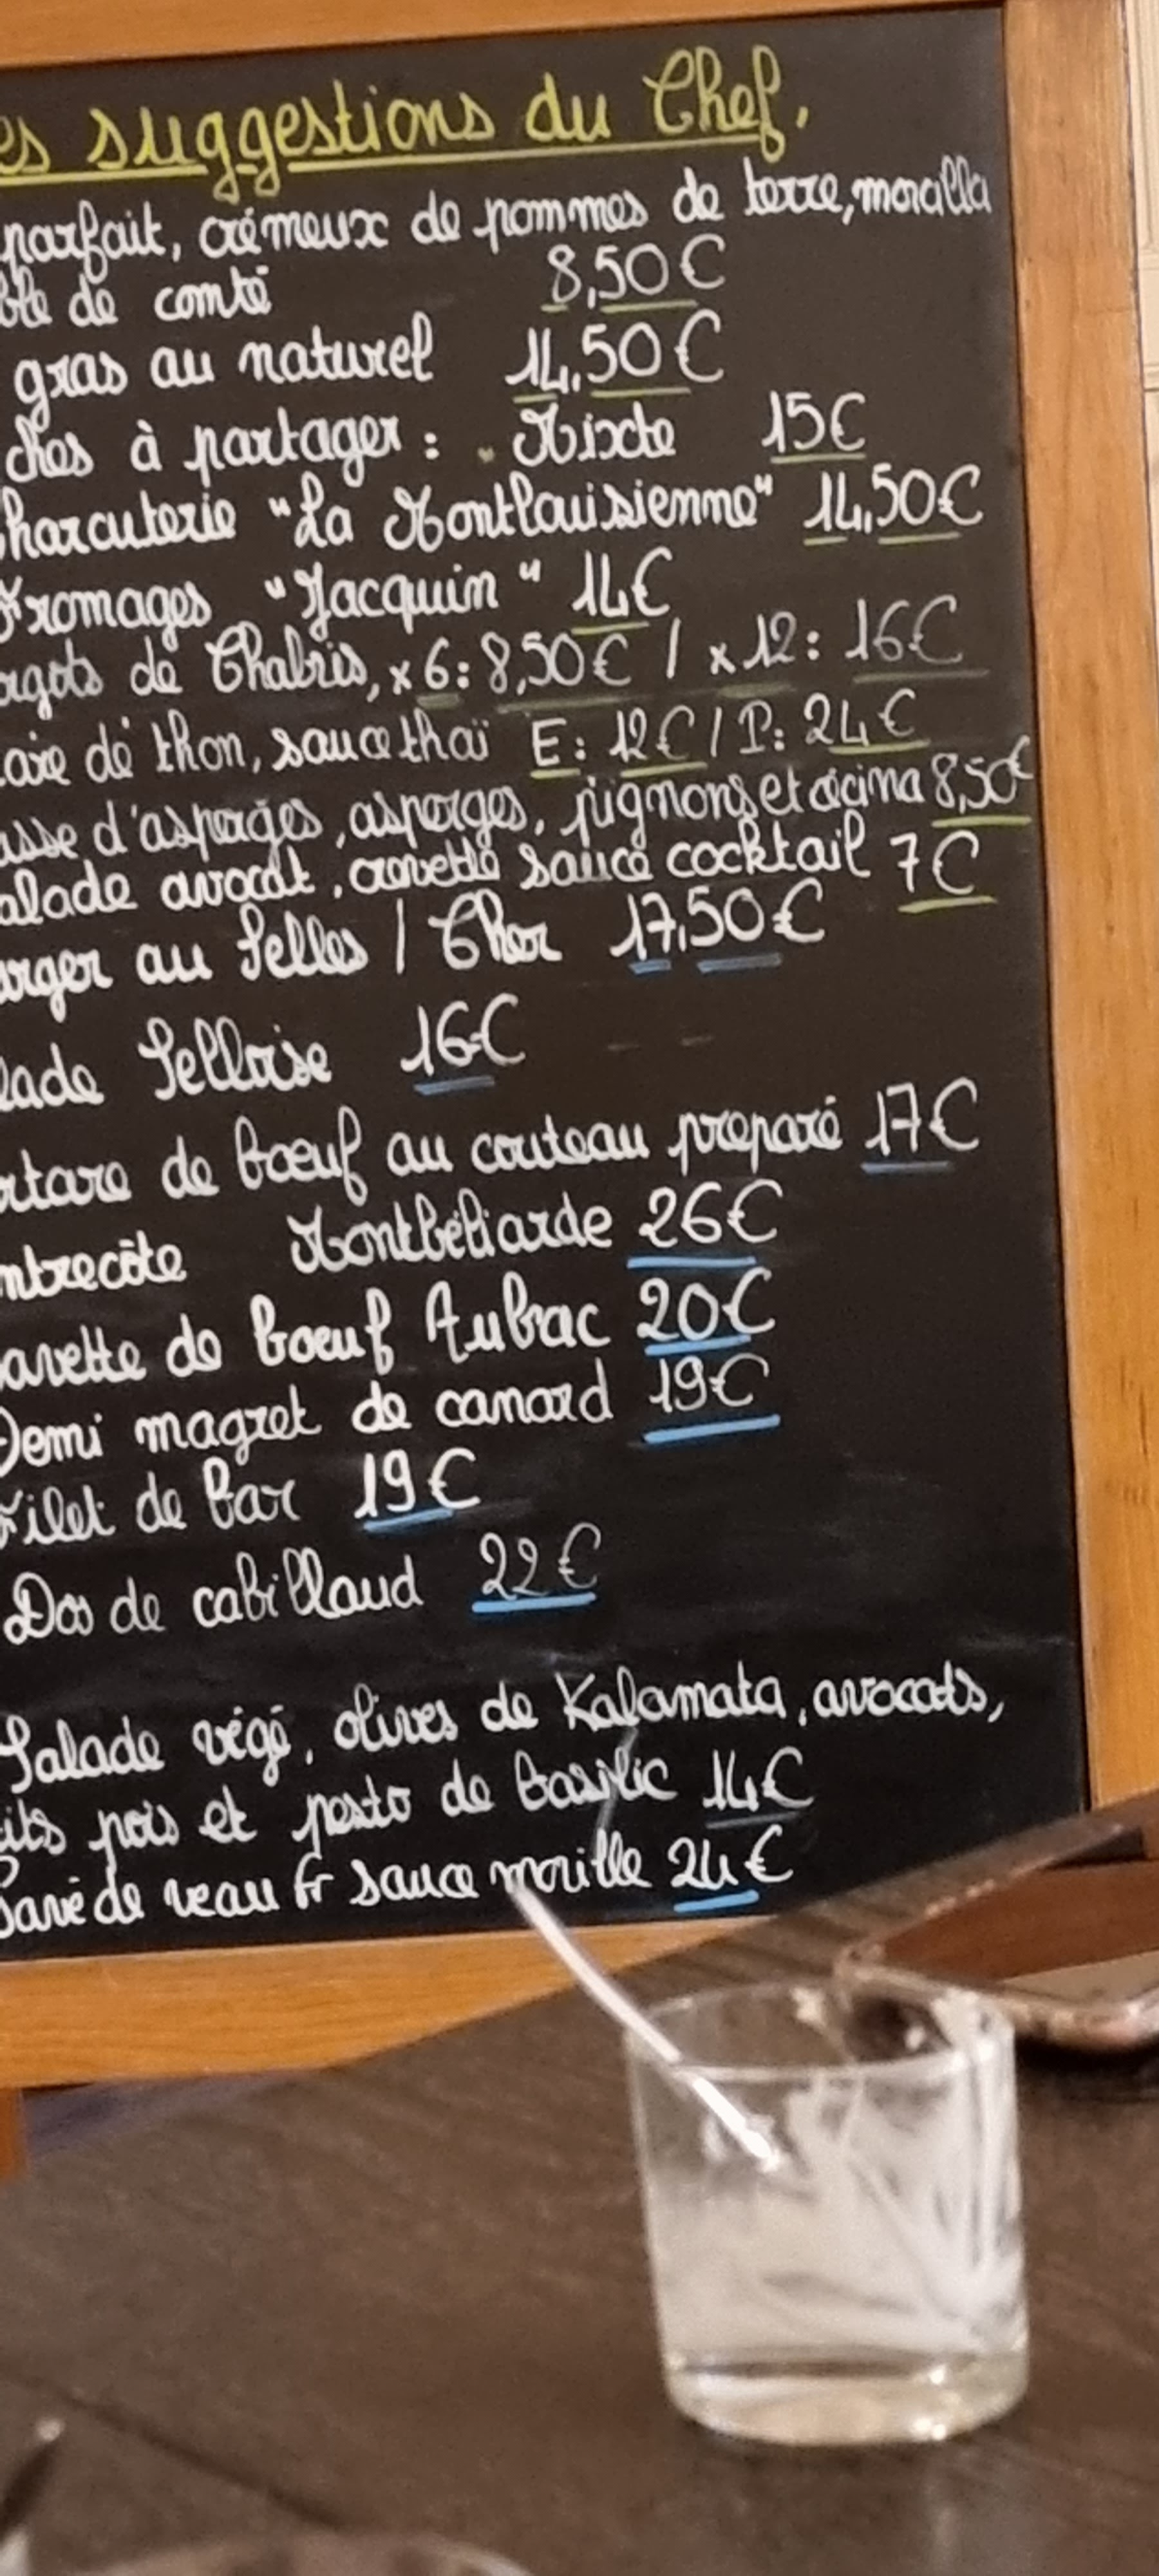 es suggestions du Chef.
parfait, crémeux de pommes de terre, morilla
ble de comté 8,50€
gras au naturel 14,50€
ches à partager : . Mixte 15€
harcuterie "La Montlouisienne" 14,50€
Fromages "Jacquin" 14€
argots de Chabris, x6: 8,50€ / x12: 16€
tare de thon, sauce thaï E: 12€ / P: 24€
asse d'asperges, asperges, pignons et cécina 8,50€
alade avocat, crevette sauce cocktail 7€
urger au Selles / Cher 17,50€
lade Selloise 16€
rtare de bœuf au couteau préparé 17€
ntrecôte Montbéliarde 26€
avette de bœuf Aubrac 20€
Demi magret de canard 19€
Filet de bar 19€
Dos de cabillaud 22€
Salade végé, olives de Kalamata, avocats,
its pois et pesto de basilic 14€
Pavé de veau fr sauce morille 24€